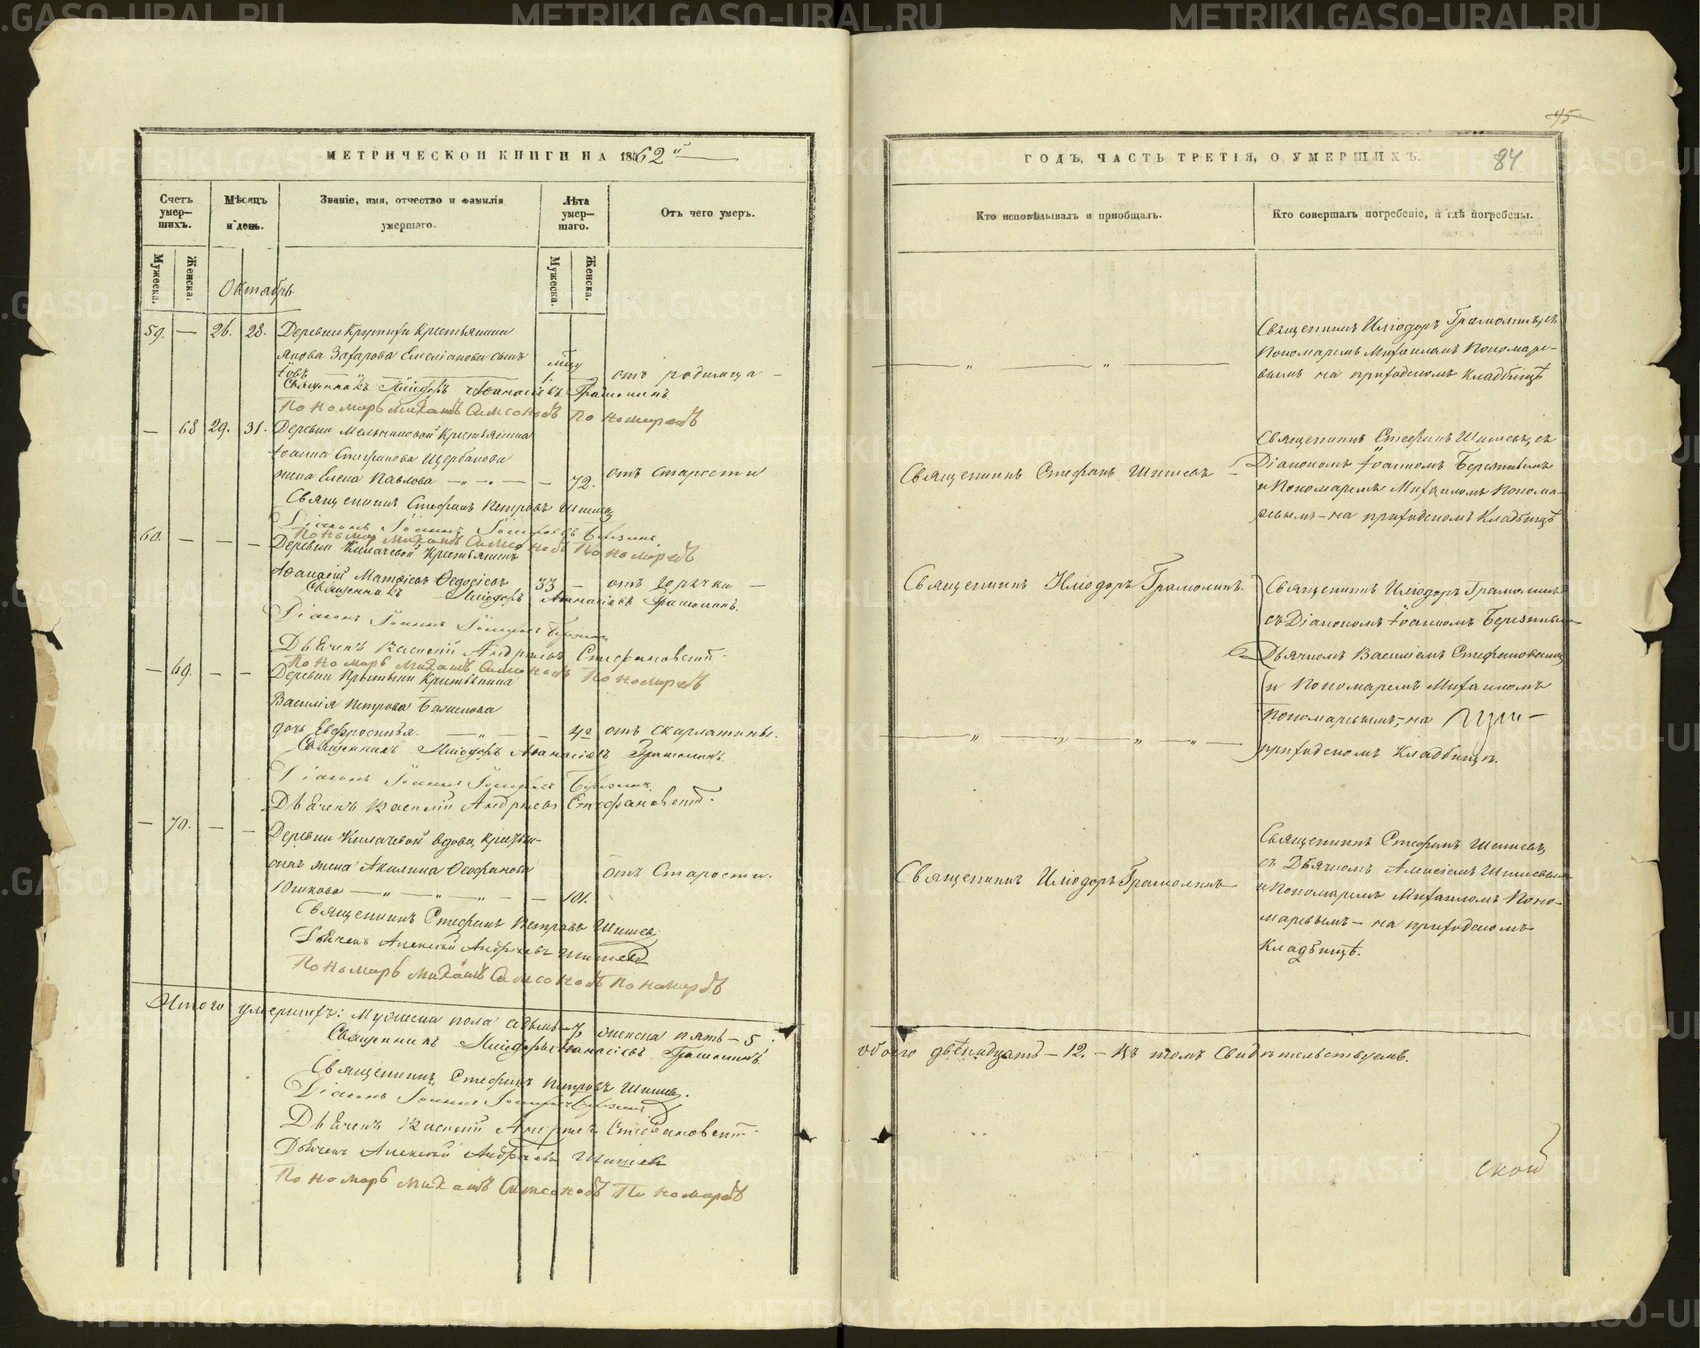 МЕТРИЧЕСКОЙ КНИГИ НА 1862й
Счетъ умер-шихъ.
Мѣсяцъ и день.
Званіе, имя, отчество и фамилія умершаго.
Лѣта умер-шаго.
Отъ чего умеръ.
Мужеска.
Женска.
Мужеска.
Женска.
Октябрь
59. — 26. 28. Деревни Крутихи Крестьянина
Захарова Емельянова сынъ
отъ родимца —
Священникъ Иліодоръ Аѳанасіевъ Грамолинъ
Пономарь Михаилъ Самсоновъ Пономаревъ
— 68 29. 31. Деревни Мельниковой Крестьянина
Іоанна Стефанова Щербакова
жена Елена Павлова — — 72. отъ старости
Священникъ Стефанъ Петровъ Шишевъ
Діаконъ Іоаннъ
Пономарь Михаилъ Самсоновъ Пономаревъ
60. — — — Деревни Килачевой Крестьянинъ
Аѳанасій Матѳіевъ Ѳедосіевъ 33 — отъ горячки —
Священникъ Иліодоръ Аѳанасіевъ Грамолинъ.
Діаконъ Іоаннъ
Дьячекъ Василій Андреевъ Стефановскій
Пономарь Михаилъ Самсоновъ Пономаревъ
— 69. — — Деревни Крестьянина
Василія Петрова
дочь Евфросинья — — 4 отъ скарлатины.
Священникъ Иліодоръ Аѳанасіевъ Грамолинъ.
Діаконъ Іоаннъ
Дьячекъ Василій Андреевъ Стефановскій.
— 70. — — Деревни Килачевой вдова, крестьян-
ская жена Акилина Ѳеофанова
Юшкова — — 101. отъ Старости.
Священникъ Стефанъ Петровъ Шишевъ
Дьячекъ Алексѣй Андреевъ Шишевъ
Пономарь Михаилъ Самсоновъ Пономаревъ
Итого умершихъ: Мужеска пола седмь — 7, женска пять — 5.
Священникъ Иліодоръ Аѳанасіевъ Грамолинъ
Священникъ Стефанъ Петровъ Шишевъ.
Діаконъ Іоаннъ
Дьячекъ Василій Андреевъ Стефановскій.
Дьячекъ Алексѣй Андреевъ Шишевъ
Пономарь Михаилъ Самсоновъ Пономаревъ
45
ГОДЪ, ЧАСТЬ ТРЕТІЯ, О УМЕРШИХЪ.
84
Кто исповѣдывалъ и приобщалъ.
Кто совершалъ погребеніе, и гдѣ погребены.
Священникъ Иліодоръ Грамолинъ, съ
Пономаремъ Михаиломъ Пономаре-
вымъ на приходскомъ кладбищѣ
Священникъ Стефанъ Шишевъ —
Священникъ Стефанъ Шишевъ, съ
Діакономъ Іоанномъ
и Пономаремъ Михаиломъ Понома-
ревымъ — на приходскомъ кладбищѣ
Священникъ Иліодоръ Грамолинъ.
Священникъ Иліодоръ Грамолинъ
съ Діакономъ Іоанномъ
Дьячкомъ Василіемъ Стефановскимъ
и Пономаремъ Михаиломъ
Пономаревымъ, — на при-
приходскомъ кладбищѣ.
Священникъ Иліодоръ Грамолинъ
Священникъ Стефанъ Шишевъ,
съ Дьячкомъ Алексіемъ Шишевымъ
и Пономаремъ Михаиломъ Поно-
маревымъ — на приходскомъ
кладбищѣ.
обоего двѣнадцать — 12. — Въ томъ свидѣтельствуемъ.
ской
METRIKI.GASO-URAL.RU